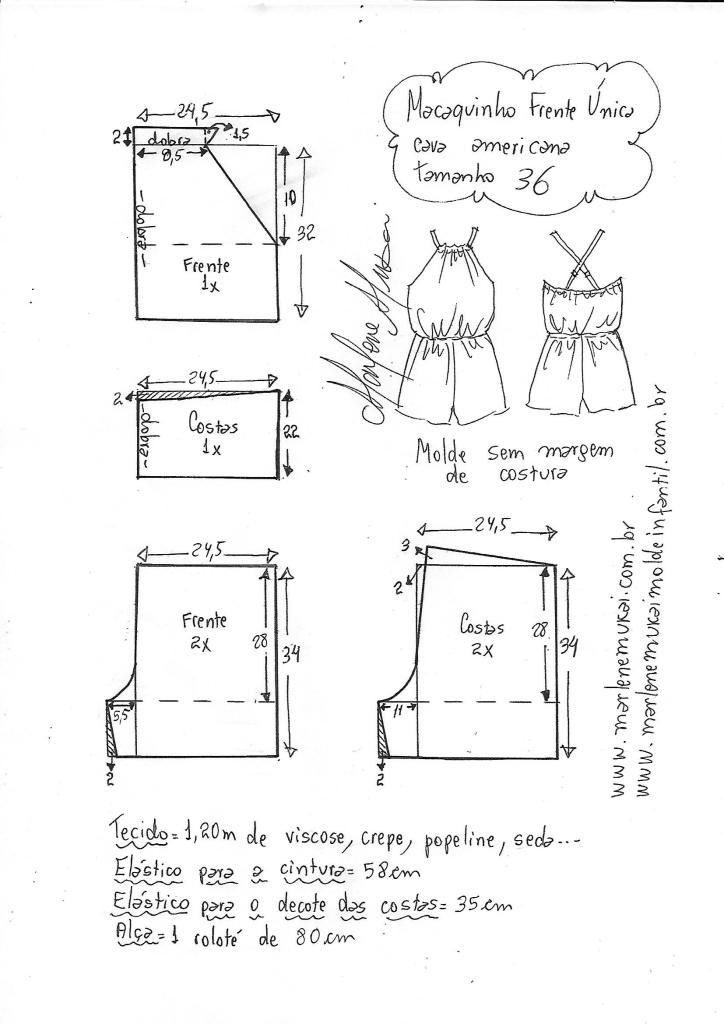 Macaquinho Frente Única
cava americana
tamanho 36
24,5
2
dobra
1,5
9,5
10
32
dobra
Frente
1x
Marlene Mukai
24,5
2
dobra
Costas
1x
22
Molde sem margem
de costura
24,5
Frente
2x
28
34
5,5
2
24,5
3
2
Costas
2x
28
34
11
2
www.marlenemukai.com.br
www.marlenemukaimoldeinfantil.com.br
Tecido=1,20m de viscose, crepe, popeline, seda...
Elástico para a cintura=58cm
Elástico para o decote das costas=35cm
Alça=1 roloté de 80cm